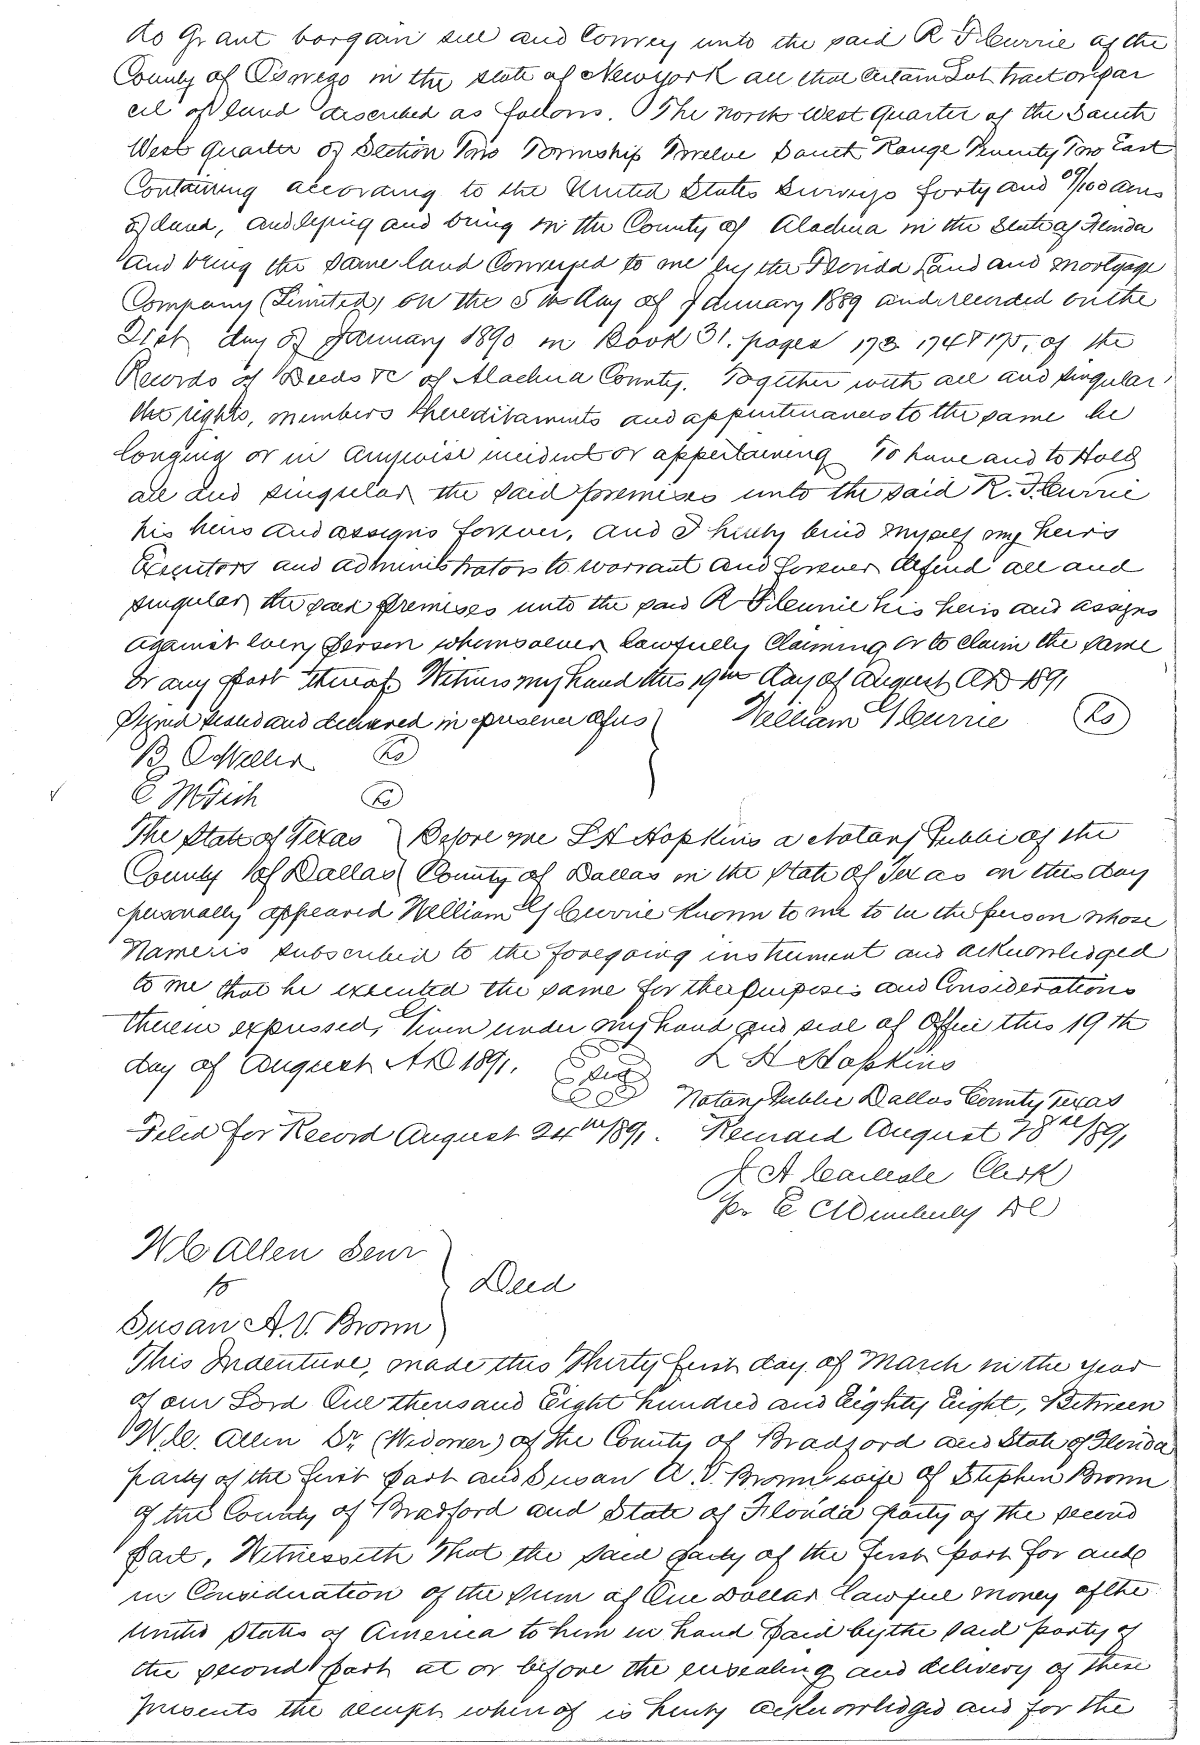 do Grant bargain sell and Convey unto the said R F Currie of the
County of Oswego in the state of New York all that certain Lot tract or par
cel of land described as follows. The North West Quarter of the South
West quarter of Section Two Township Twelve South Range Twenty Two East
Containing according to the United States Surveys forty and 09/100 acres
of land, and lying and being in the County of Alachua in the State of Florida
and being the same land Conveyed to me by the Florida Land and Mortgage
Company (Limited) on the 5th day of January 1889 and recorded on the
21st day of January 1890 in Book 31. pages 173 174 & 175, of the
Records of Deeds &c of Alachua County. Together with all and singular
the rights, members & hereditaments and appurtenances to the same be
longing or in anywise incident or appertaining To have and to Hold
all and singular the said premises unto the said R. F. Currie
his heirs and assigns forever, and I hereby bind myself my heirs
Executors and administrators to warrant and forever defend all and
singular the said premises unto the said R F Currie his heirs and assigns
against every person whomsoever lawfully Claiming or to claim the same
or any part thereof. Witness my hand this 19th day of August AD 1891
Signed sealed and delivered in presence of us William G Currie Ls
B O Weller Ls
E M Fish Ls
The State of Texas Before me L H Hopkins a Notary Public of the
County of Dallas County of Dallas in the State of Texas on this day
personally appeared William G Currie known to me to be the person whose
Name is subscribed to the foregoing instrument and acknowledged
to me that he executed the same for the purposes and Considerations
therein expressed, Given under my hand and seal of Office this 19th
day of August AD 1891. Seal L H Hopkins
Notary Public Dallas County Texas
Filed for Record August 24th 1891. Record August 28th 1891
J A Carlisle Clerk
Pr E C Wimberly DC
W C Allen Senr
to Deed
Susan A. V. Brown
This Indenture, made this Thirty first day of March in the year
of our Lord One thousand Eight hundred and Eighty Eight, Between
W. C. Allen Sr (Widower) of the County of Bradford and State of Florida
party of the first part and Susan A. V. Brown wife of Stephen Brown
of the County of Bradford and State of Florida party of the second
part, Witnesseth That the said party of the first part for and
in Consideration of the sum of One Dollar lawful money of the
United States of America to him in hand paid by the said party of
the second part at or before the ensealing and delivery of these
presents the receipt whereof is hereby acknowledged and for the